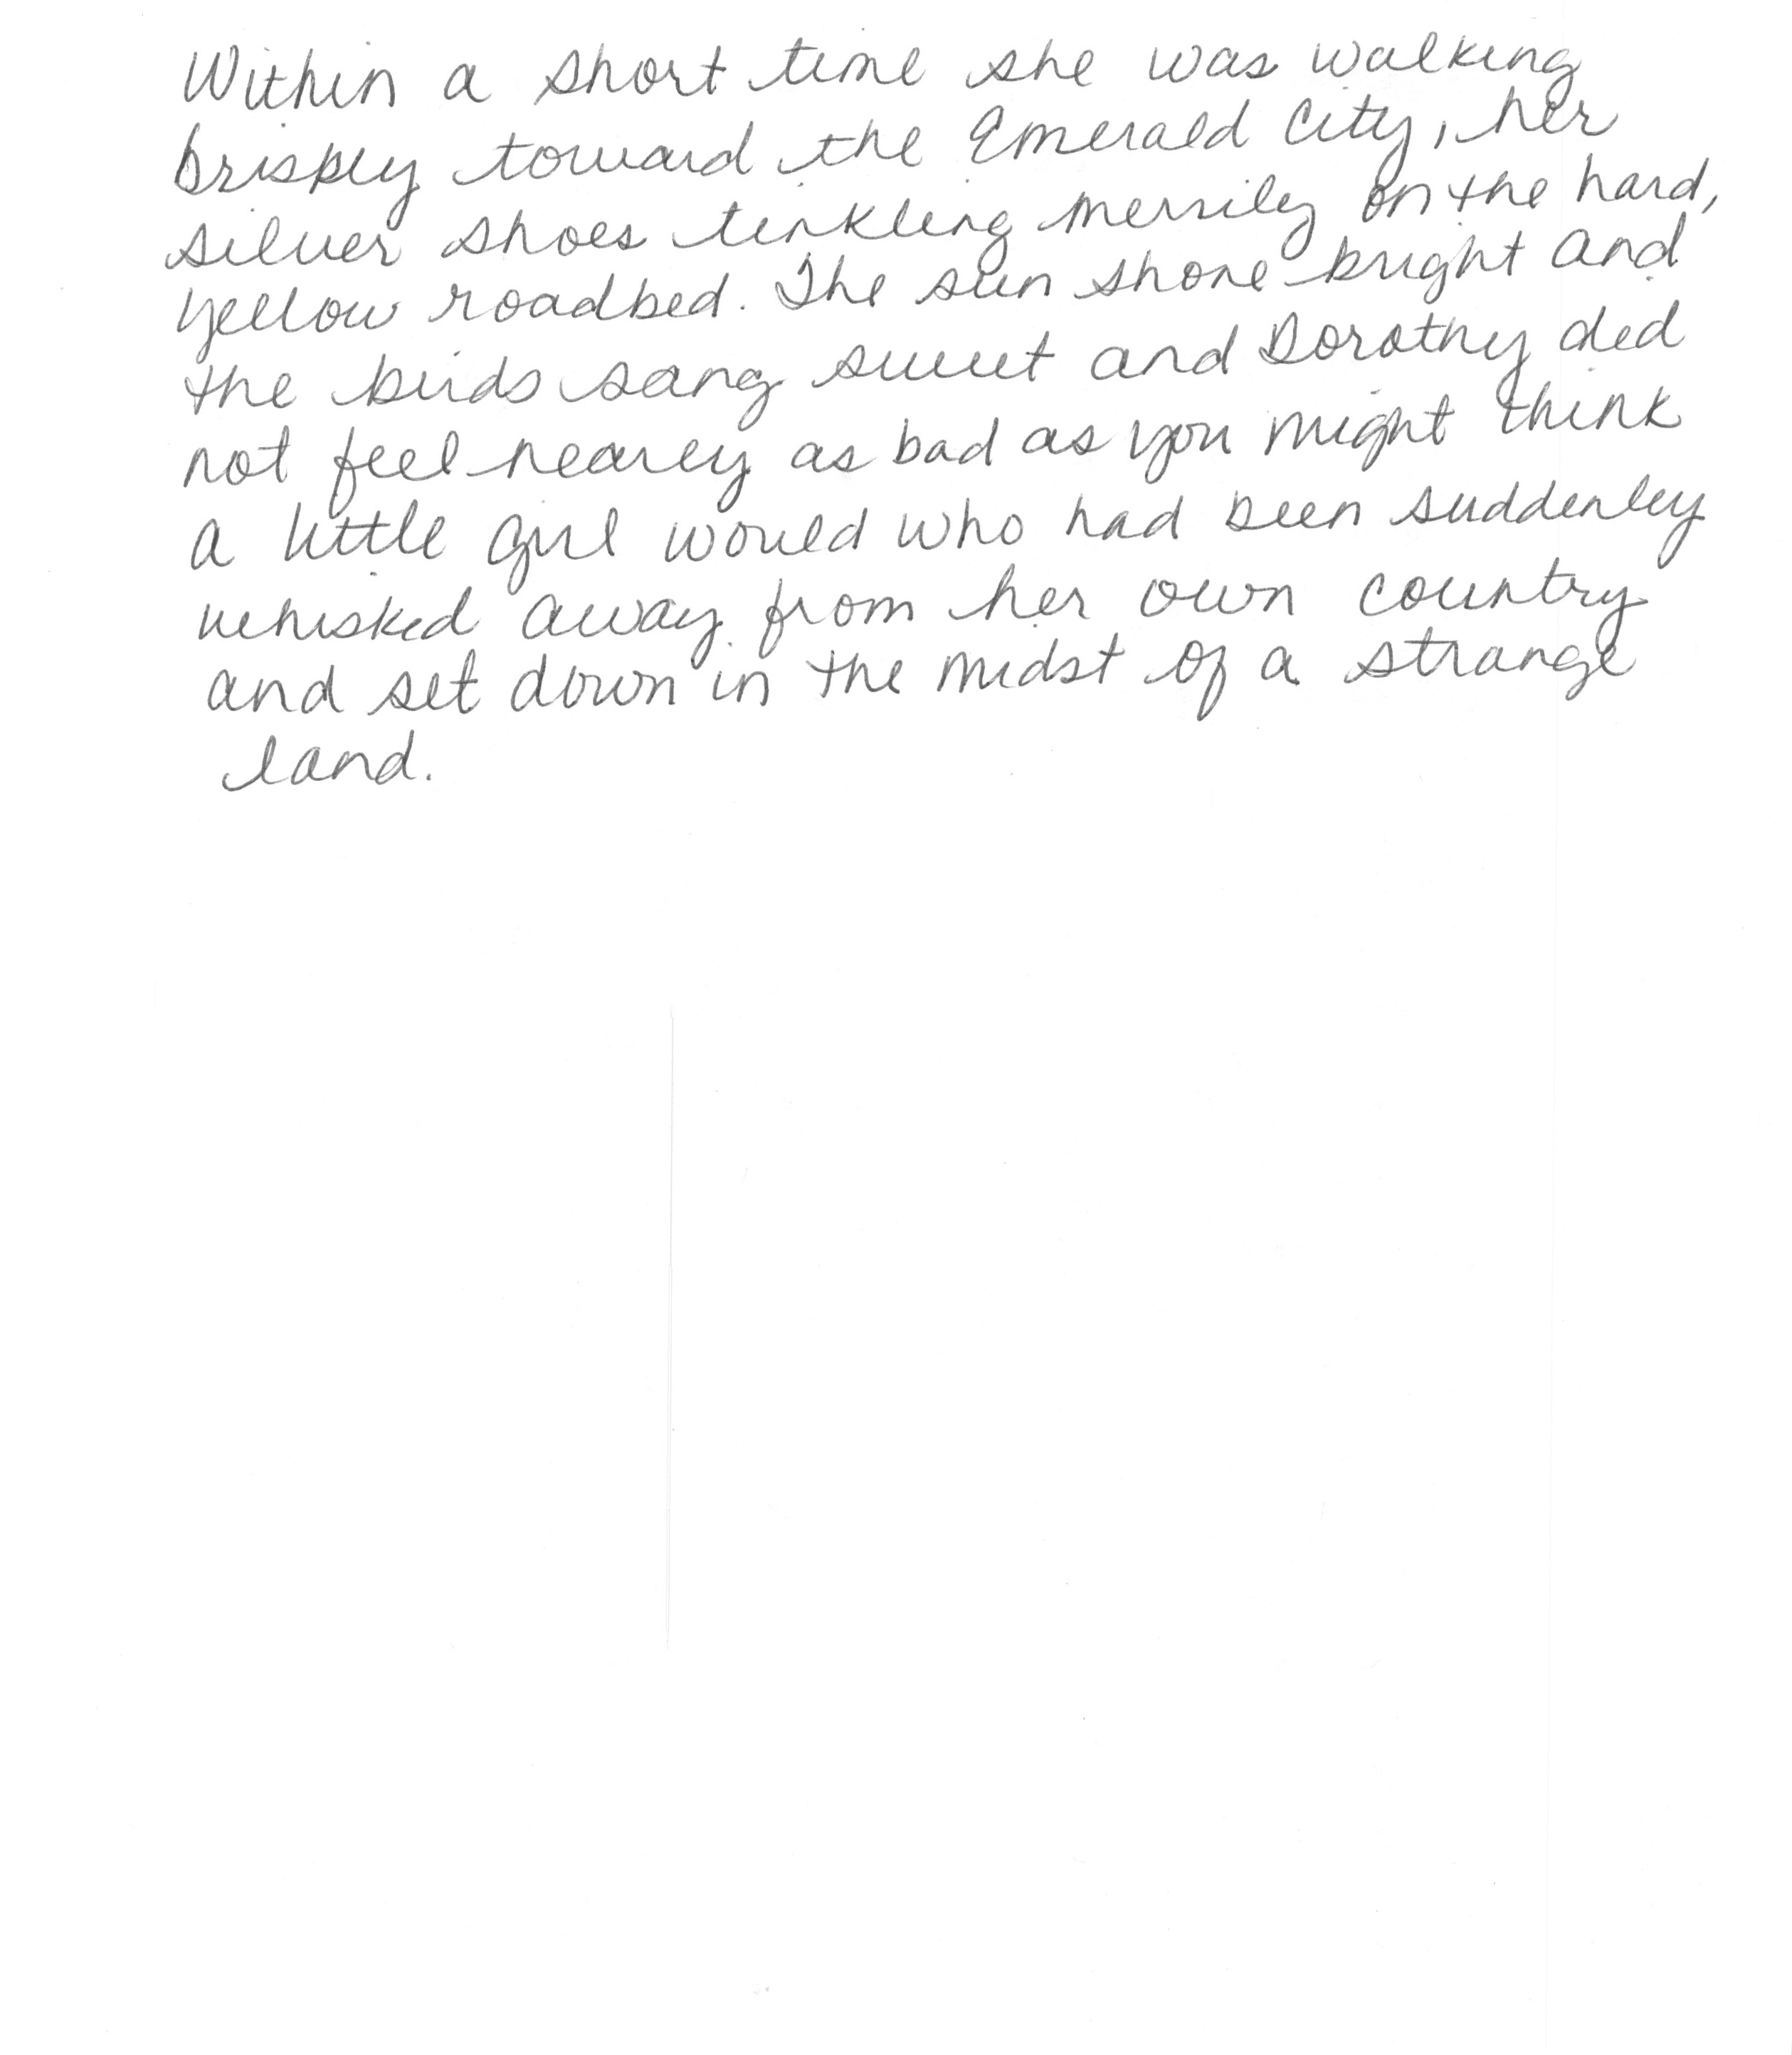 Within a short time she was walking
briskly toward the Emerald City, her
silver shoes tinkling merrily on the hard,
yellow roadbed. The sun shone bright and
the birds sang sweet and Dorothy did
not feel nearly as bad as you might think
a little girl would who had been suddenly
whisked away from her own country
and set down in the midst of a strange
land.